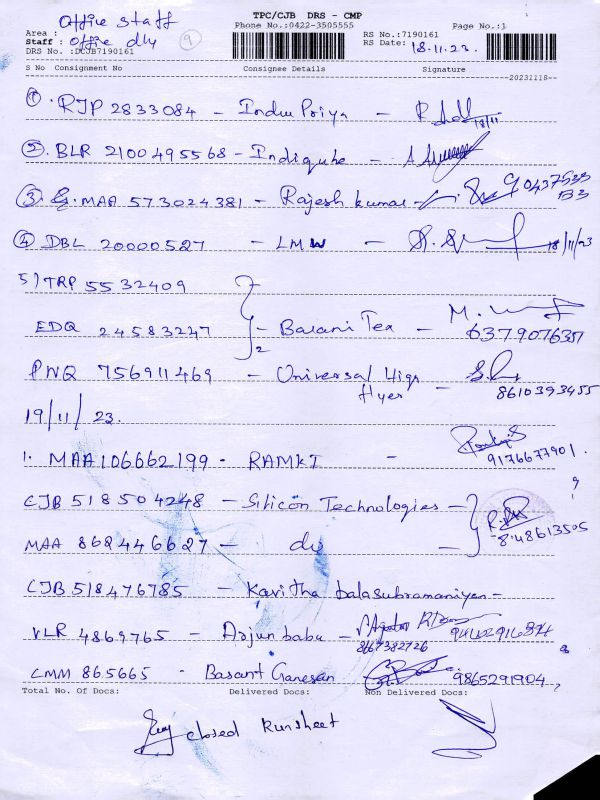 TPC/CJB DRS - CMP
Phone No.:0422-3505555
Page No.:1
Area : Office staff
Staff : Office dly
DRS No. :DCJB7190161
9
RS No.:7190161
RS Date: 18.11.23.
S No Consignment No Consignee Details Signature
20231118
① . RJP 2833084 - Indu Priya - 18/11
② . BLR 2100495568 - Indiqube -
③ . MAA 573024381 - Rajesh kumar -
④ DBL 20000527 - LMW - 18/11/23
5) TRP 5532409
EDQ 24583247 } 2 - Barani Tea - 637907635
PNQ 756911469 - Universal High flyer - 8610393455
19/11/23.
1. MAA106662199 - RAMKI - 9176677901.
CJB 518504248 - Silicon Technologies -
MAA 862446627 - do - 8.48613505
CJB 518476785 - Kavitha balasubramaniyan -
VLR 4869765 - Arjun babu - 8667382726
CMM 865665 - Basant Ganesan 9865291904,
Total No. Of Docs: Delivered Docs: Non Delivered Docs:
closed Runsheet